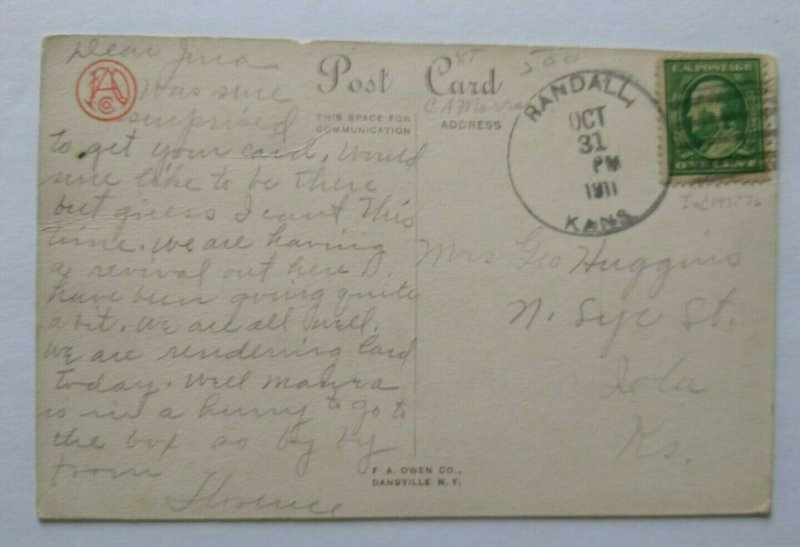 Dear Jera
Was sure
surprised
to get your card. Would
sure like to be there
but guess I cant this
time. We are having
a revival out here I.
have been going quite
a bit. We are all well.
We are rendering lard
today. Well mamma
is in a hurry to go to
the box so by by
from
Florence
Post Card
THIS SPACE FOR
COMMUNICATION
ADDRESS
500
RANDALL,
OCT
31
PM
1911
KANS.
U.S. POSTAGE
Mrs Geo Huggins
N. Syc St.
Iola
Ks.
F. A. OWEN CO.,
DANSVILLE, N. Y.